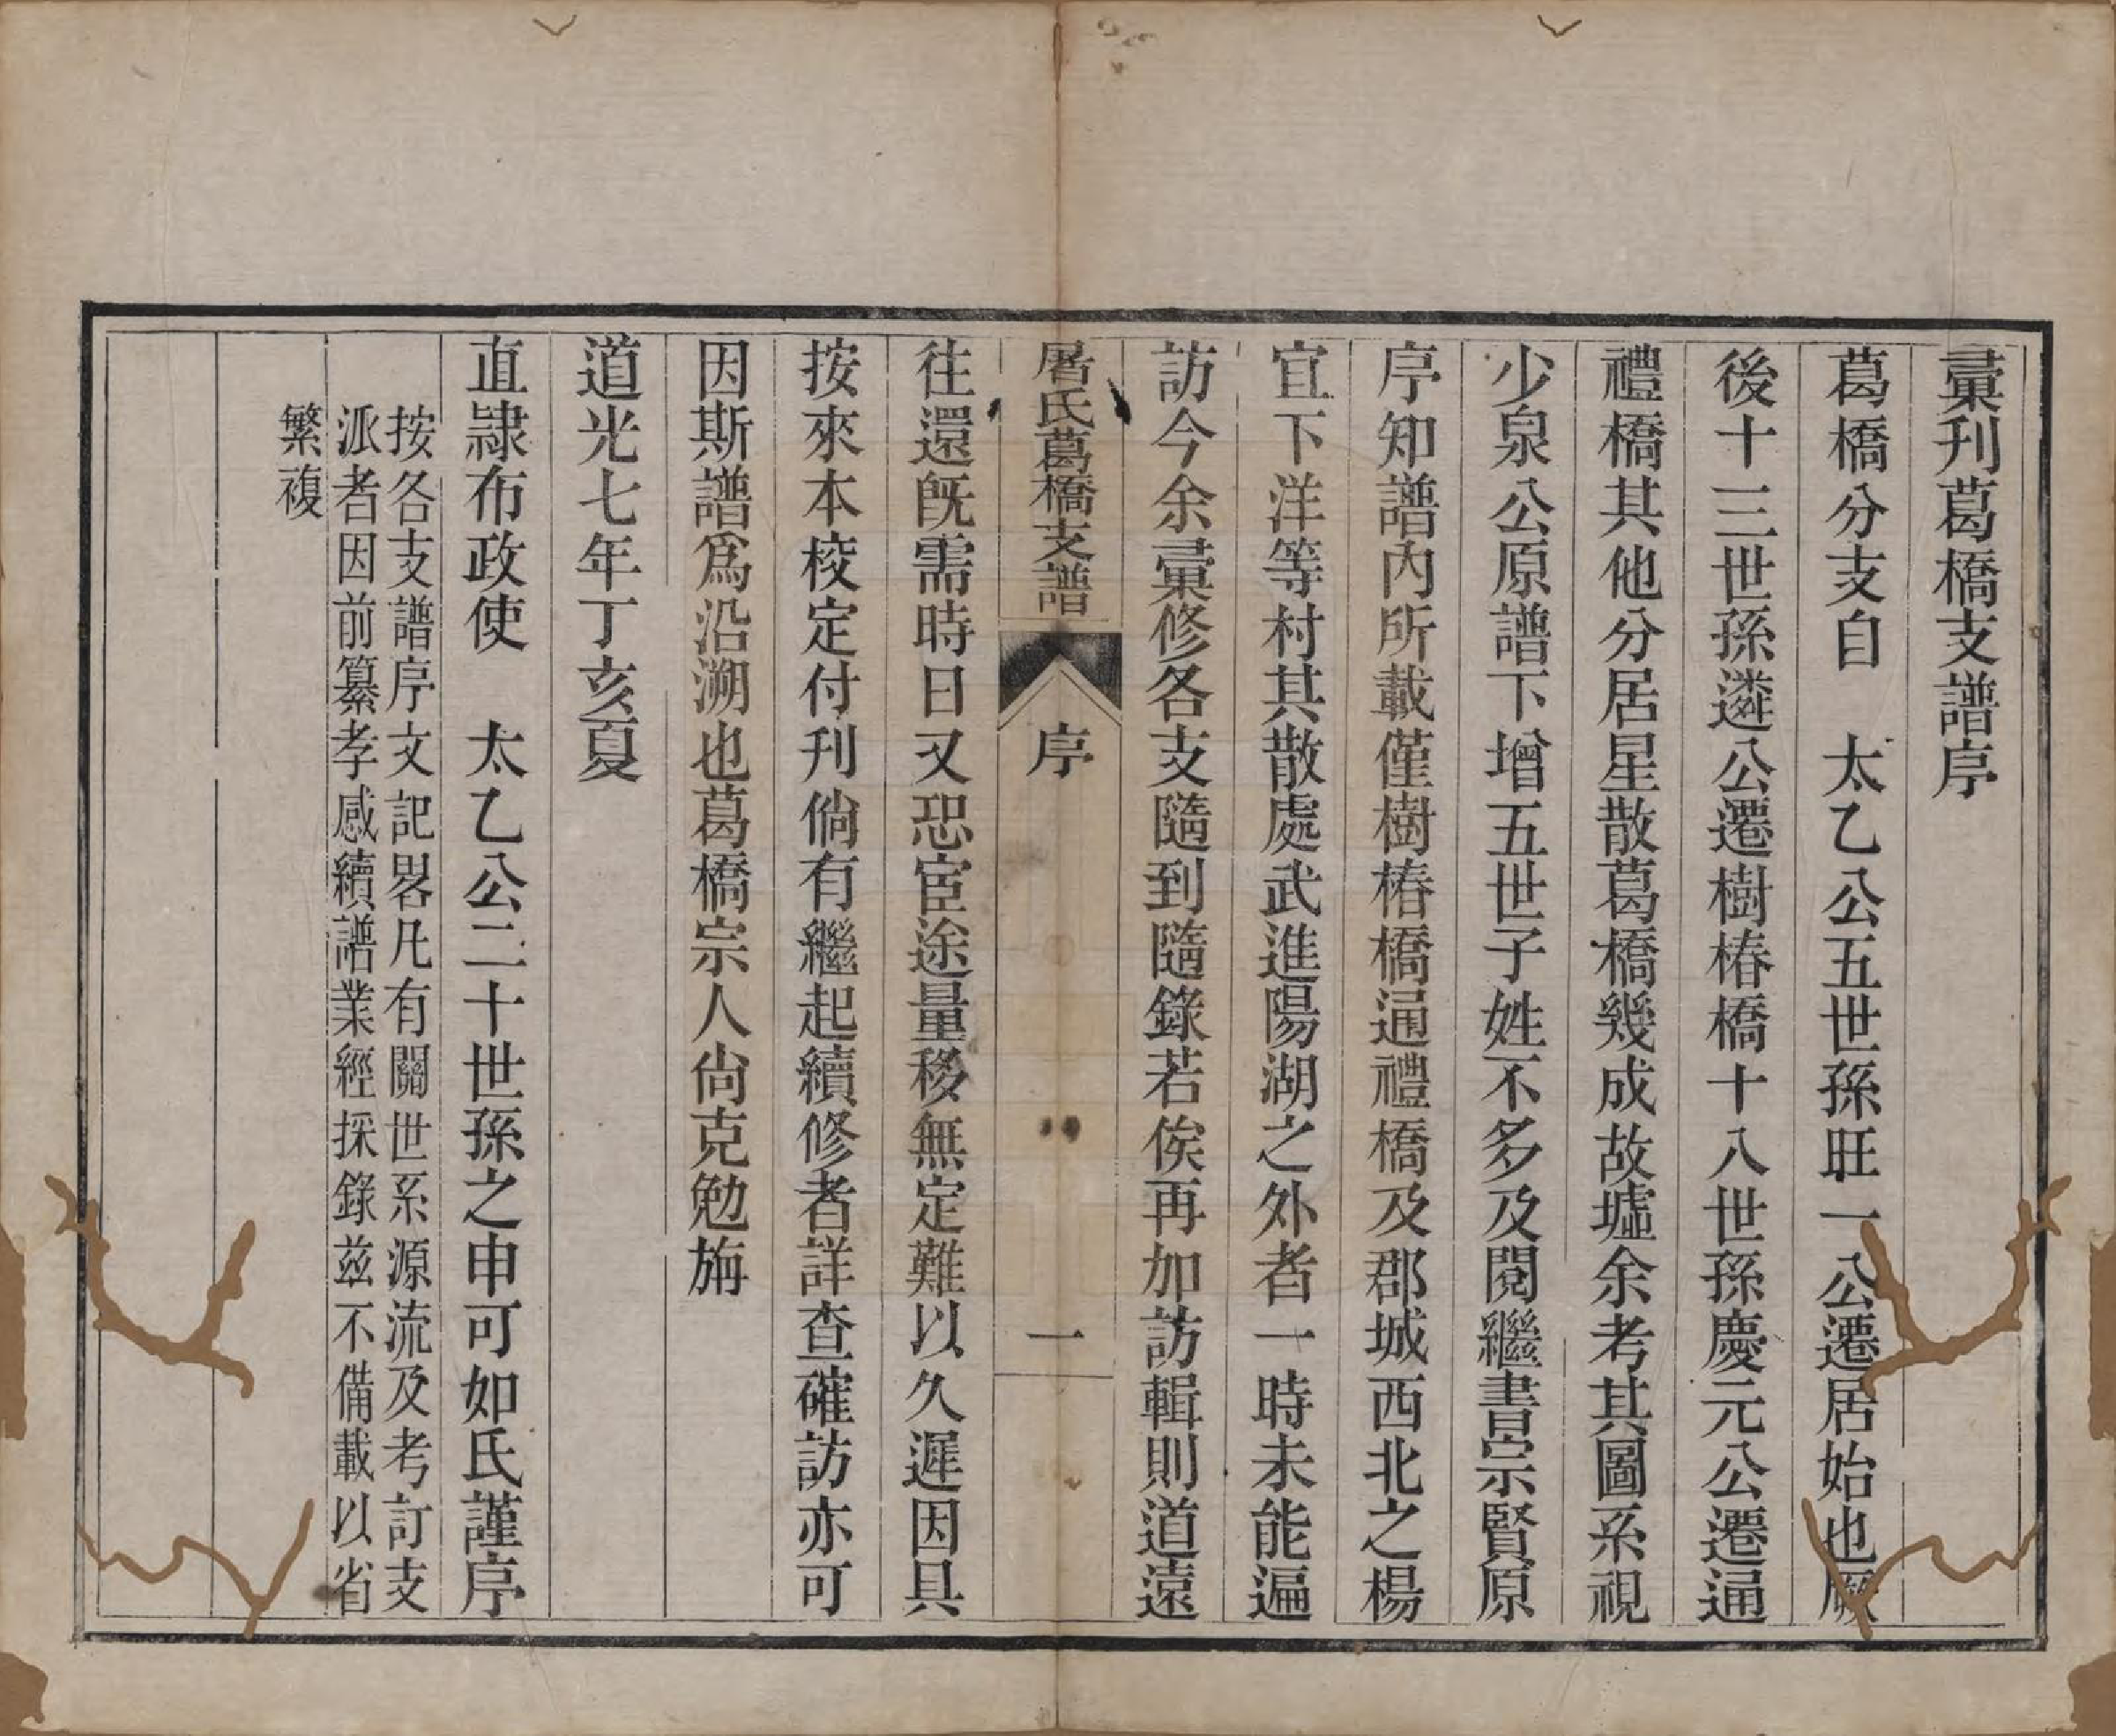 彙刊葛橋支譜序
葛橋分支自　太乙公五世孫旺一公遷居始也厥
後十三世孫遴公遷樹椿橋十八世孫慶元公遷通
禮橋其他分居星散葛橋幾成故墟余考其圖系視
少泉公原譜下增五世子姓不多及閱繼書宗賢原
序知譜內所載僅樹椿橋通禮橋及郡城西北之楊
宜下洋等村其散處武進陽湖之外者一時未能遍
訪今余彙修各支隨到隨錄若俟再加訪輯則道遠
屠氏葛橋支譜　序　一
往還旣需時日又恐宦途量移無定難以久遲因具
按來本校定付刊倘有繼起續修者詳查確訪亦可
因斯譜爲沿溯也葛橋宗人尙克勉旃
道光七年丁亥夏
直隸布政使　太乙公二十世孫之申可如氏謹序
按各支譜序文記畧凡有關世系源流及考訂支
派者因前纂孝感續譜業經採錄兹不備載以省
繁複